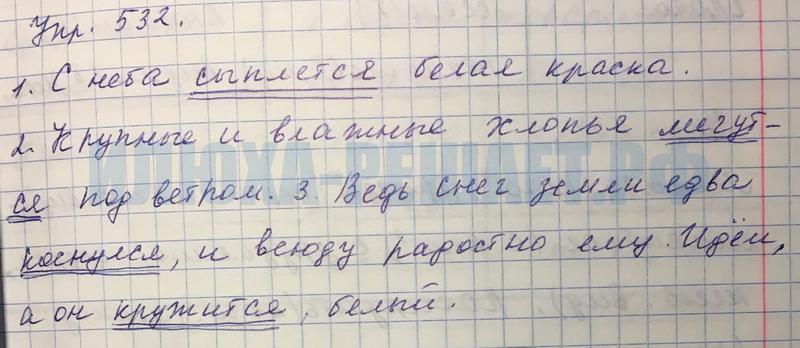 Упр. 532.
1. С неба сыплется белая краска.
2. Крупные и влажные хлопья мечут-
ся под ветром. 3. Ведь снег земли едва
коснулся, и всюду радостно ему. Идёт,
а он кружится, белый.
ИЛЮХА-РЕШАЕТ.РФ